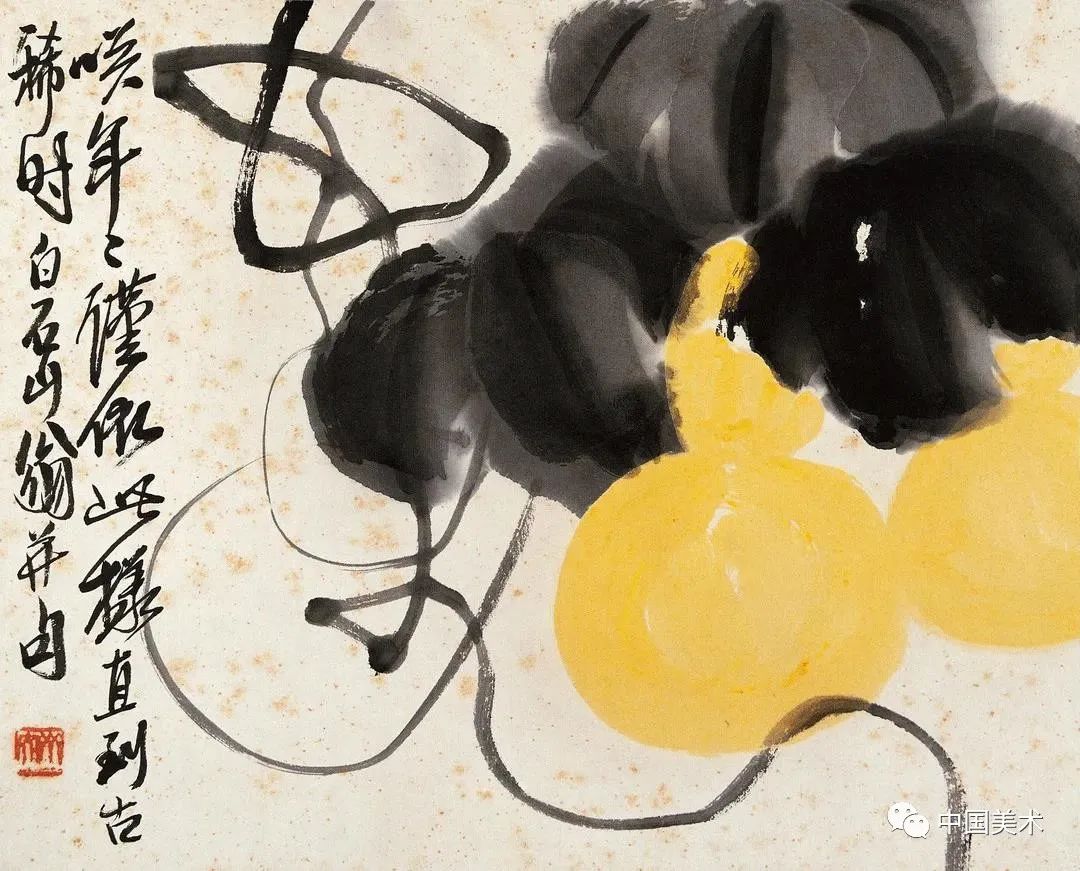 咲年〻依此樣直到古
稀时白石山翁并句
中国美术